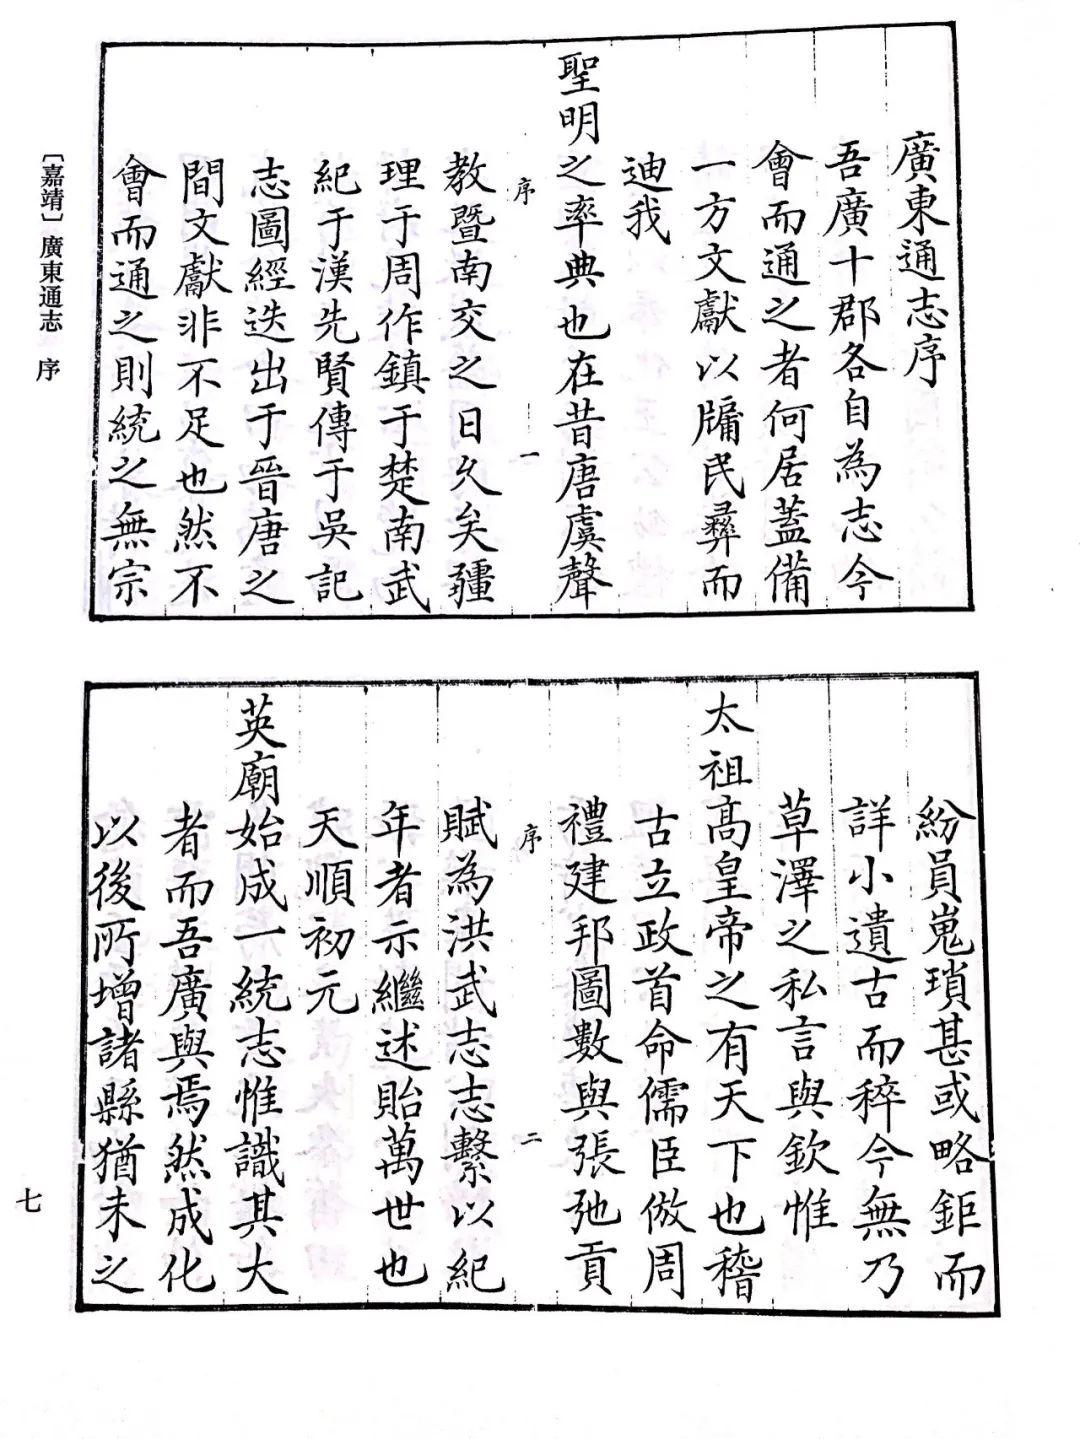 廣東通志序
吾廣十郡各自為志今
會而通之者何居蓋備
一方文獻以牖民彝而
迪我
聖明之率典也在昔唐虞聲
序
一
教暨南交之日久矣疆
理于周作鎮于楚南武
紀于漢先賢傳于吳記
志圖經迭出于晉唐之
間文獻非不足也然不
會而通之則統之無宗
〔嘉靖〕廣東通志 序
紛員嵬瑣甚或略鉅而
詳小遺古而稡今無乃
草澤之私言與欽惟
太祖高皇帝之有天下也稽
古立政首命儒臣倣周
禮建邦圖數與張弛貢
序
二
賦為洪武志志繫以紀
年者示繼述貽萬世也
天順初元
英廟始成一統志惟識其大
者而吾廣與焉然成化
以後所增諸縣猶未之
七